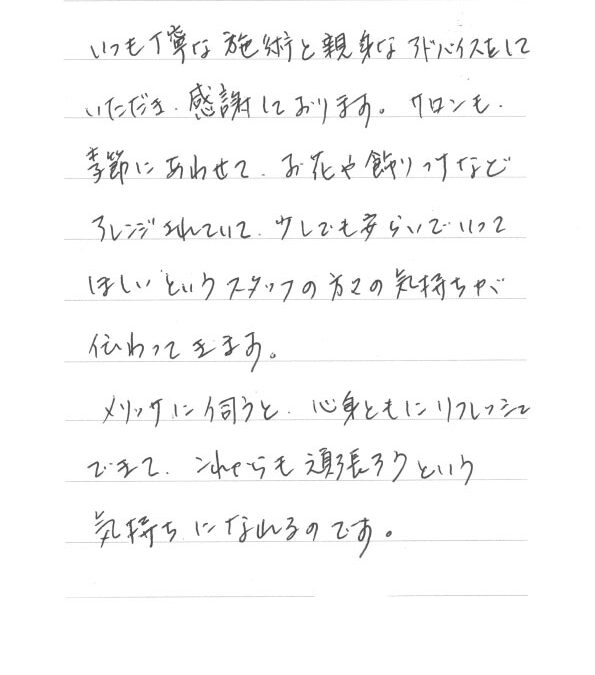 いつも丁寧な施術と親身なアドバイスをして
いただき、感謝しております。サロンも、
季節にあわせて、お花や飾りつけなど
アレンジされていて、少しでも安らいでいって
ほしいというスタッフの方々の気持ちが
伝わってきます。
メリッサに伺うと、心身ともにリフレッシュ
できて、これからも頑張ろうという
気持ちになれるのです。